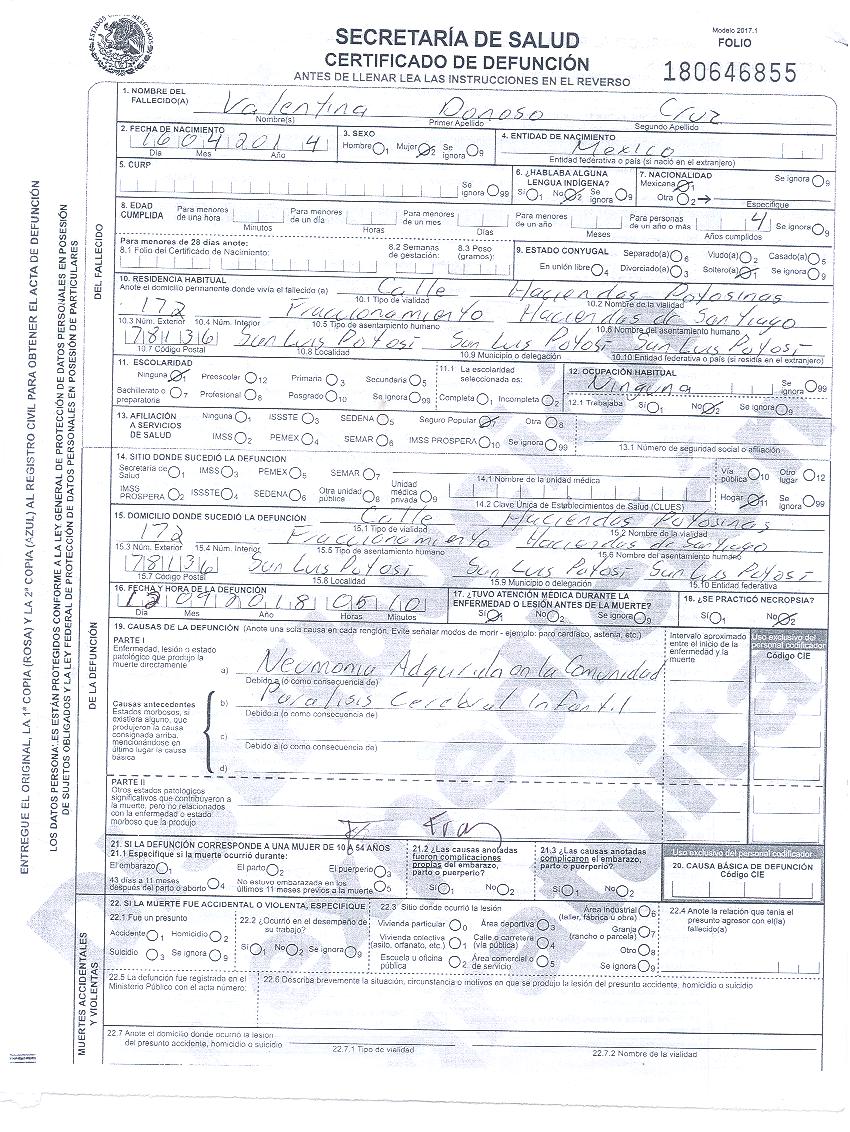 Modelo 2017.1
SECRETARÍA DE SALUD
FOLIO
CERTIFICADO DE DEFUNCIÓN
ANTES DE LLENAR LEA LAS INSTRUCCIONES EN EL REVERSO
180646855
ENTREGUE EL ORIGINAL, LA 1ª COPIA (ROSA) Y LA 2ª COPIA (AZUL) AL REGISTRO CIVIL PARA OBTENER EL ACTA DE DEFUNCIÓN
LOS DATOS PERSONALES ESTÁN PROTEGIDOS CONFORME A LA LEY GENERAL DE PROTECCIÓN DE DATOS PERSONALES EN POSESIÓN
DE SUJETOS OBLIGADOS Y LA LEY FEDERAL DE PROTECCIÓN DE DATOS PERSONALES EN POSESIÓN DE PARTICULARES
DEL FALLECIDO
1. NOMBRE DEL FALLECIDO(A) Valentina Donoso Cruz
Nombre(s) Primer Apellido Segundo Apellido
2. FECHA DE NACIMIENTO 16 04 2014 3. SEXO Hombre 1 Mujer 2 Se ignora 9 4. ENTIDAD DE NACIMIENTO Mexico
Día Mes Año Entidad federativa o país (si nació en el extranjero)
5. CURP Se ignora 99 6. ¿HABLABA ALGUNA LENGUA INDÍGENA? Sí 1 No 2 Se ignora 9 7. NACIONALIDAD Mexicana 1 Otra 2 Especifique Se ignora 9
8. EDAD CUMPLIDA Para menores de una hora Minutos Para menores de un día Horas Para menores de un mes Días Para menores de un año Meses Para personas de un año o más 4 Años cumplidos Se ignora 9
Para menores de 28 días anote:
8.1 Folio del Certificado de Nacimiento: 8.2 Semanas de gestación: 8.3 Peso (gramos):
9. ESTADO CONYUGAL Separado(a) 6 Viudo(a) 2 Casado(a) 5
En unión libre 4 Divorciado(a) 3 Soltero(a) 1 Se ignora 9
10. RESIDENCIA HABITUAL Calle Haciendas Potosinas
Anote el domicilio permanente donde vivía el fallecido (a) 10.1 Tipo de vialidad 10.2 Nombre de la vialidad
172 Fraccionamiento Haciendas de Santiago
10.3 Núm. Exterior 10.4 Núm. Interior 10.5 Tipo de asentamiento humano 10.6 Nombre del asentamiento humano
78136 San Luis Potosi San Luis Potosi San Luis Potosi
10.7 Código Postal 10.8 Localidad 10.9 Municipio o delegación 10.10 Entidad federativa o país (si residía en el extranjero)
11. ESCOLARIDAD
Ninguna 1 Preescolar 12 Primaria 3 Secundaria 5
Bachillerato o preparatoria 7 Profesional 8 Posgrado 10 Se ignora 99
11.1 La escolaridad seleccionada es: Completa 1 Incompleta 2
12. OCUPACIÓN HABITUAL Ninguna Se ignora 99
12.1 Trabajaba Sí 1 No 2 Se ignora 9
13. AFILIACIÓN A SERVICIOS DE SALUD Ninguna 1 ISSSTE 3 SEDENA 5 Seguro Popular Otra 8
IMSS 2 PEMEX 4 SEMAR 6 IMSS PROSPERA 10 Se ignora 99 13.1 Número de seguridad social o afiliación
DE LA DEFUNCIÓN
14. SITIO DONDE SUCEDIÓ LA DEFUNCIÓN
Secretaría de Salud 1 IMSS 3 PEMEX 5 SEMAR 7 14.1 Nombre de la unidad médica Vía pública 10 Otro lugar 12
IMSS PROSPERA 2 ISSSTE 4 SEDENA 6 Otra unidad pública 8 Unidad médica privada 9 14.2 Clave Única de Establecimientos de Salud (CLUES) Hogar 11 Se ignora 99
15. DOMICILIO DONDE SUCEDIÓ LA DEFUNCIÓN Calle Haciendas Potosinas
15.1 Tipo de vialidad 15.2 Nombre de la vialidad
172 Fraccionamiento Haciendas de Santiago
15.3 Núm. Exterior 15.4 Núm. Interior 15.5 Tipo de asentamiento humano 15.6 Nombre del asentamiento humano
78136 San Luis Potosi San Luis Potosi San Luis Potosi
15.7 Código Postal 15.8 Localidad 15.9 Municipio o delegación 15.10 Entidad federativa
16. FECHA Y HORA DE LA DEFUNCIÓN 12 09 2018 05 10
Día Mes Año Horas Minutos
17. ¿TUVO ATENCIÓN MÉDICA DURANTE LA ENFERMEDAD O LESIÓN ANTES DE LA MUERTE? Sí 1 No 2 Se ignora 9
18. ¿SE PRACTICÓ NECROPSIA? Sí 1 No 2
19. CAUSAS DE LA DEFUNCIÓN (Anote una sola causa en cada renglón. Evite señalar modos de morir - ejemplo: paro cardíaco, astenia, etc.)
Intervalo aproximado entre el inicio de la enfermedad y la muerte
Uso exclusivo del personal codificador
Código CIE
PARTE I
Enfermedad, lesión o estado patológico que produjo la muerte directamente
a) Neumonia Adquirida en la Comunidad
Debido a (o como consecuencia de)
Causas antecedentes
Estados morbosos, si existiera alguno, que produjeron la causa consignada arriba, mencionándose en último lugar la causa básica
b) Paralisis Cerebral Infantil
Debido a (o como consecuencia de)
c)
Debido a (o como consecuencia de)
d)
PARTE II
Otros estados patológicos significativos que contribuyeron a la muerte, pero no relacionados con la enfermedad o estado morboso que la produjo
21. SI LA DEFUNCIÓN CORRESPONDE A UNA MUJER DE 10 A 54 AÑOS
21.1 Especifique si la muerte ocurrió durante:
El embarazo 1 El parto 2 El puerperio 3
43 días a 11 meses después del parto o aborto 4 No estuvo embarazada en los últimos 11 meses previos a la muerte 5
21.2 ¿Las causas anotadas fueron complicaciones propias del embarazo, parto o puerperio? Sí 1 No 2
21.3 ¿Las causas anotadas complicaron el embarazo, parto o puerperio? Sí 1 No 2
Uso exclusivo del personal codificador
20. CAUSA BÁSICA DE DEFUNCIÓN
Código CIE
MUERTES ACCIDENTALES Y VIOLENTAS
22. SI LA MUERTE FUE ACCIDENTAL O VIOLENTA, ESPECIFIQUE
22.1 Fue un presunto
Accidente 1 Homicidio 2
Suicidio 3 Se ignora 9
22.2 ¿Ocurrió en el desempeño de su trabajo? Sí 1 No 2 Se ignora 9
22.3 Sitio donde ocurrió la lesión
Vivienda particular 0 Área deportiva 3 Área industrial (taller, fábrica u obra) 6
Vivienda colectiva (asilo, orfanato, etc.) 1 Calle o carretera (vía pública) 4 Granja (rancho o parcela) 7
Escuela u oficina pública 2 Área comercial o de servicio 5 Otro 8
Se ignora 9
22.4 Anote la relación que tenía el presunto agresor con el(la) fallecido(a)
22.5 La defunción fue registrada en el Ministerio Público con el acta número:
22.6 Describa brevemente la situación, circunstancia o motivos en que se produjo la lesión del presunto accidente, homicidio o suicidio
22.7 Anote el domicilio donde ocurrió la lesión del presunto accidente, homicidio o suicidio
22.7.1 Tipo de vialidad 22.7.2 Nombre de la vialidad